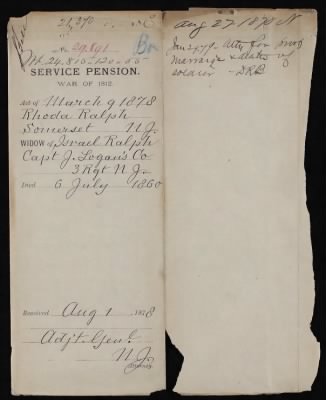 21,370
No. 29,891
Br
W.24,815-120-55
SERVICE PENSION.
WAR OF 1812.
Act of March 9 1878
Rhoda Ralph
Somerset N.J.
WIDOW of Israel Ralph
Capt J. Logan's Co
3 Rgt N.J.
Died 6 July 1860
Received Aug 1, 1878
Adj't. Genl.
N.J.
Attorney.
Aug 27 1878 N
Jan 24, 79. Atty for proof
marriage & death of
soldier DRB